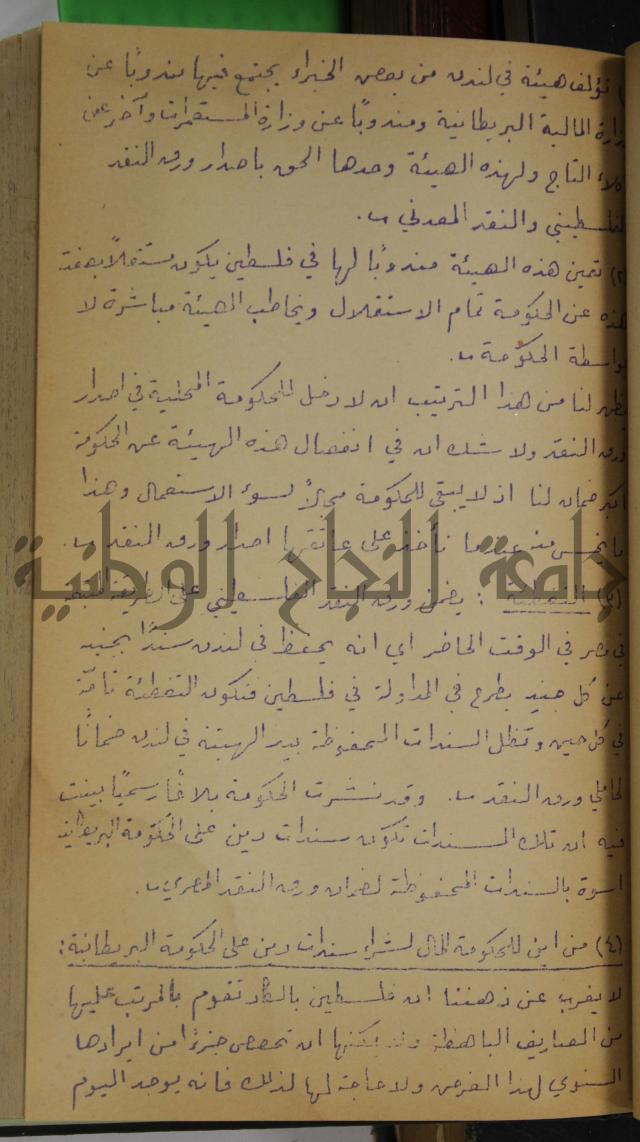 ) تؤلف هيئة في لندن من بعض الخبراء يجتمع فيها مندوبًا عن
وزارة المالية البريطانية ومندوبًا عن وزارة المستعمرات وآخر عن
وكلاء التاج ولهذه الهيئة وحدها الحق باصدار ورق النقد
الفلسطيني والنقد المعدني
(٢) تعين هذه الهيئة مندوبًا لها في فلسطين يكون مستقلاً بصفته
هذه عن الحكومة تمام الاستقلال ويخاطب الهيئة مباشرة لا
بواسطة الحكومة
يظهر لنا من هذا الترتيب ان لا دخل للحكومة المحلية في اصدار
ورق النقد ولا شك ان في انفصال هذه الهيئة عن الحكومة
اكبر ضمان لنا اذ لا يبقى للحكومة مجالاً لسوء الاستعمال وهذا
ما نخشى منه عندما تأخذ على عاتقها اصدار ورق النقد
(٣) التغطية : يضمن ورق النقد الفلسطيني على الطريقة المتبعة
في مصر في الوقت الحاضر اي انه يحفظ في لندن سندًا بجنيه
عن كل جنيه يطرح في المداولة في فلسطين فتكون التغطية تامّة
في كل حين وتظل السندات المحفوظة بيد الهيئة في لندن ضمانًا
لحاملي ورق النقد . وقد نشرت الحكومة بلاغًا رسميًا بينت
فيه ان تلك السندات تكون سندات دين على الحكومة البريطانية
اسوة بالسندات المحفوظة لضمان ورق النقد المصري
(٤) من اين للحكومة المال لشراء سندات دين على الحكومة البريطانية :
لا يغرب عن ذهننا ان فلسطين بالكاد تقوم بالمرتب عليها
من المصاريف الباهظة ولا يمكنها ان تخصص جزءًا من ايرادها
السنوي لهذا الغرض ولا حاجة لها لذلك فانه يوجد اليوم
جامعة النجاح الوطنية